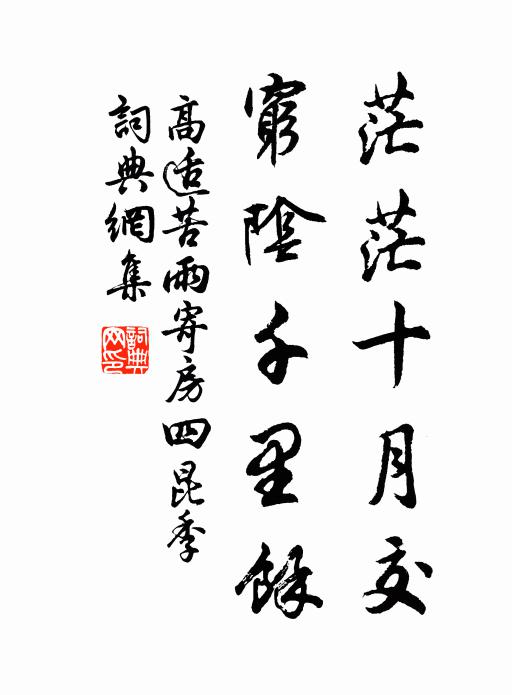 茫茫十月交
窮陰千里餘
高适苦雨寄房四昆季
詞典網集
詞典网印